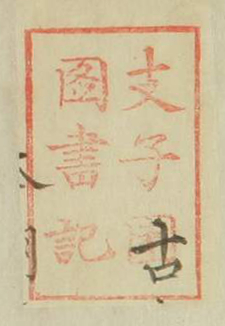 支子
圖書記
古